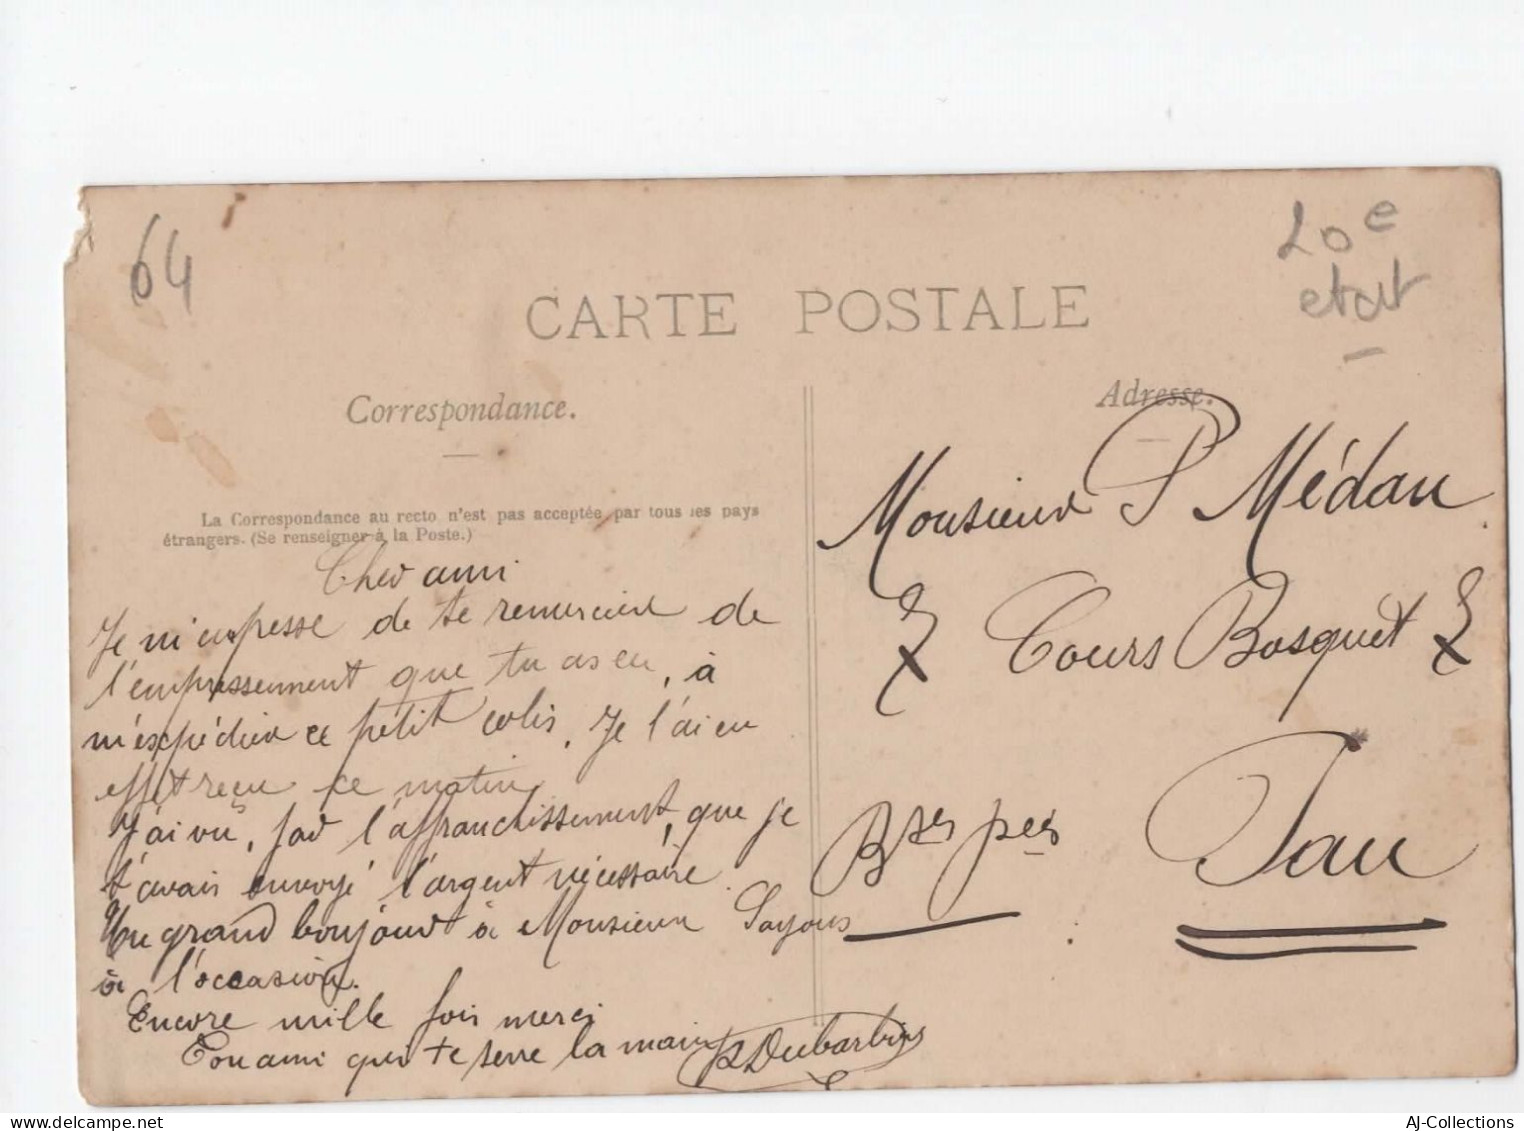 64
20e
etat
CARTE POSTALE
Correspondance.
Adresse.
La Correspondance au recto n'est pas acceptée par tous les pays
étrangers. (Se renseigner à la Poste.)
Cher ami
Je m'empresse de te remercier de
l'empressement que tu as eu, à
m'expédier ce petit colis. Je l'ai en
effet reçu ce matin
J'ai vu, par l'affranchissement, que je
t'avais envoyé l'argent nécessaire.
Un grand bonjour à Monsieur Sayous
à l'occasion.
Encore mille fois merci
Ton ami qui te serre la main
Monsieur P Médan
Cours Bosquet
Pau
Bses pées
AJ-Collections